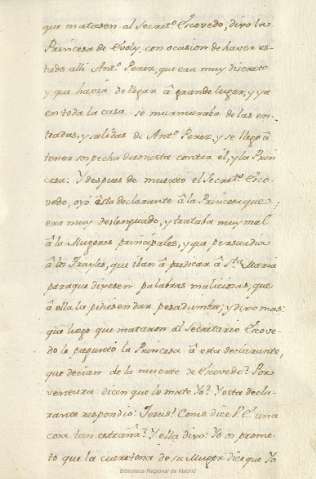 que matasen al Secretº Escovedo, dixo la
Princesa de Evoly, con ocasion de haver es-
tado alli Antº Perez, que era muy discreto
y que havia de llegar â grande lugar, y ya
en toda la casa se murmuraba de las en-
tradas, y salidas de Antº Perez, y se llegò â
tener sospecha desonesta contra èl, y la Prin-
cesa: Y despues de muerto el Secretº Esco-
vedo, oyò esta declarante â la Princesa que
era muy deslenguado, y trataba muy mal
â las Mugeres principales, y que persuadia
â los Frayles, que iban â predicar â Stª Maria
paraque dixesen palabras maliciosas, que
â ella la pudiesen dar pesadumbre; y dixo mas
que luego que mataron al Secretario Escove-
do le preguntò la Princesa â esta declarante,
que decian de la muerte de Escovedo? Por
ventura dicen que lo matè Yo? Y esta decla-
rante respondiò: Jesus! Como dice V.E. una
cosa tan estraña? Y ella dixo: Yo os prome-
to que la cuitadona de su Muger dice que Yo
Biblioteca Regional de Madrid